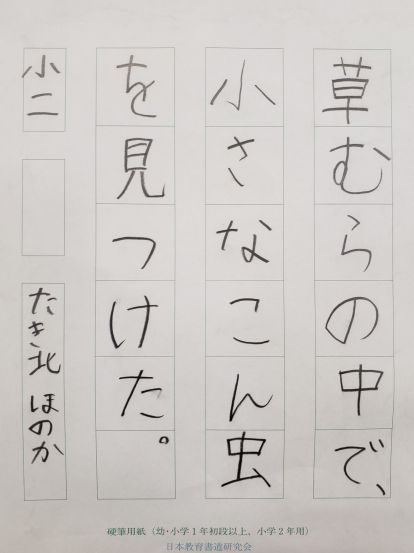 草むらの中で、
小さなこん虫
を見つけた。
小二
たき北 ほのか
硬筆用紙（幼・小学1年初段以上、小学2年用）
日本教育書道研究会